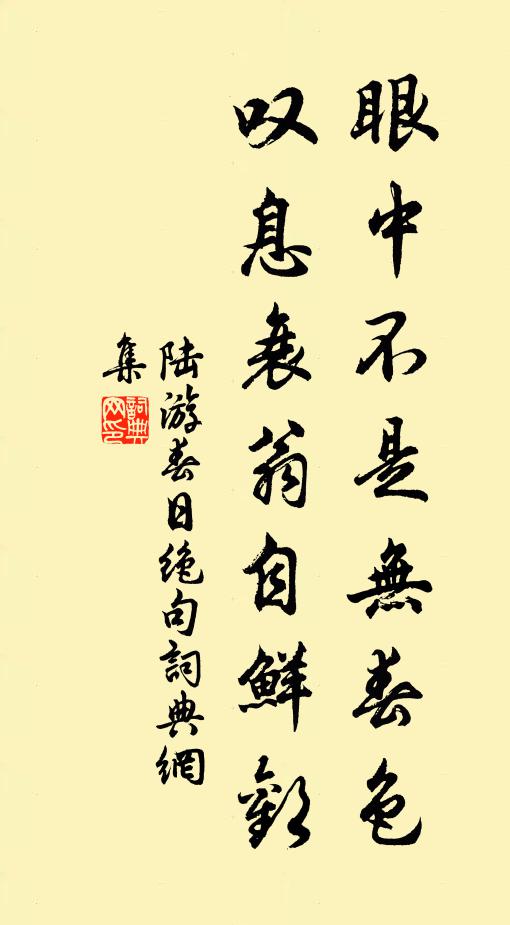 眼中不是無春色
叹息衰翁自鮮歡
陆游春日绝句詞典網
集
詞典网印